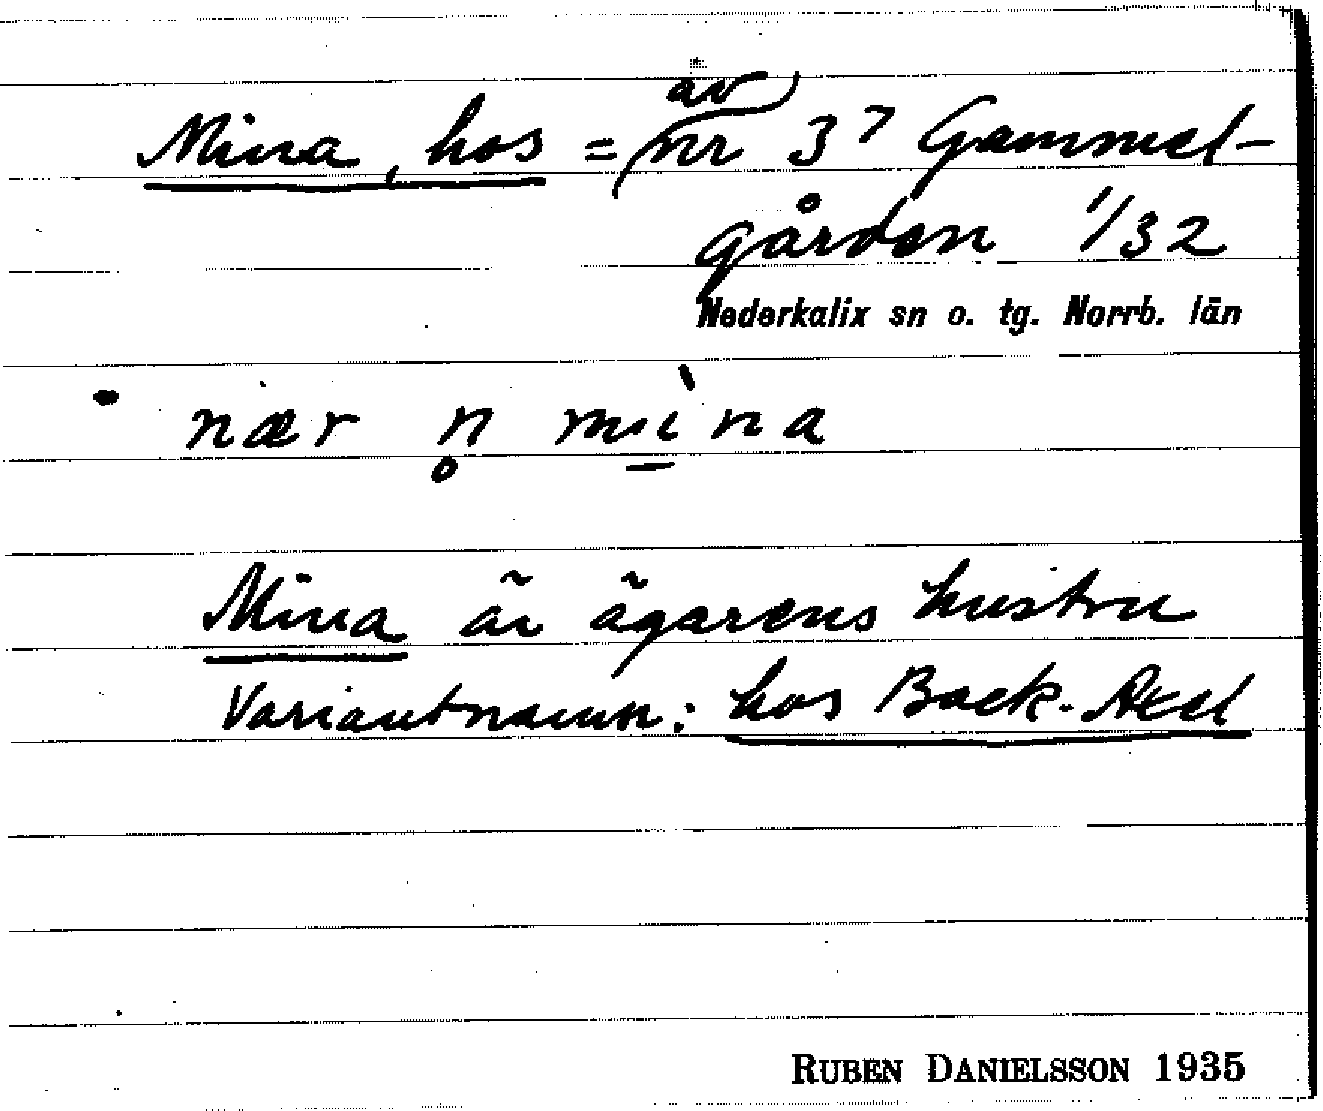 Mina, hos = (av) nr 3⁷ Gammel-
gården 1/32
Nederkalix sn o. tg. Norrb. län
nær n̥ mì̱na
Mina är ägarens hustru
Variantnamn: hos Back-Axel
RUBEN DANIELSSON 1935